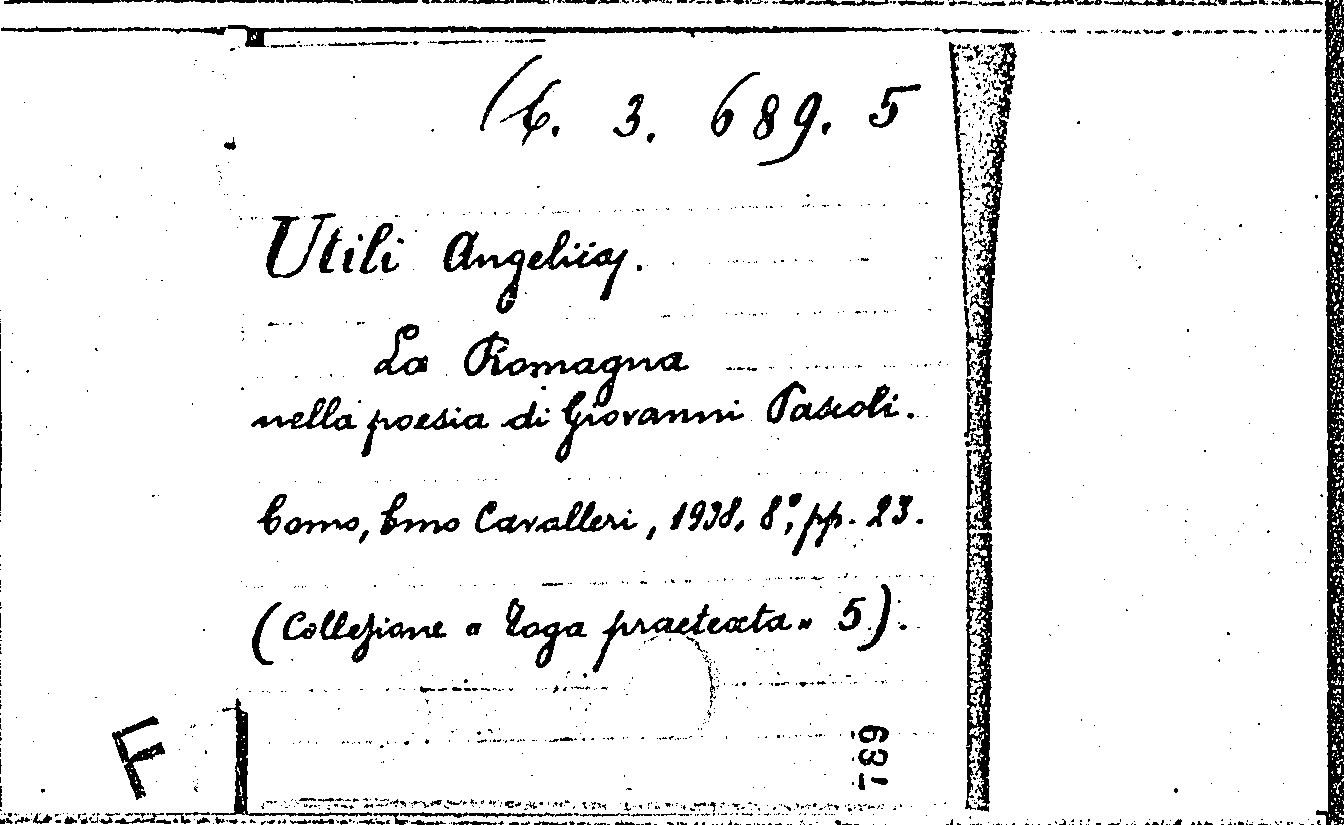 6. 3. 689. 5
Utili Angelica.
La Romagna
nella poesia di Giovanni Pascoli.
Como, Emo Cavalleri, 1938, 8°, pp. 23.
(Collezione « Toga praetexta » 5).
F